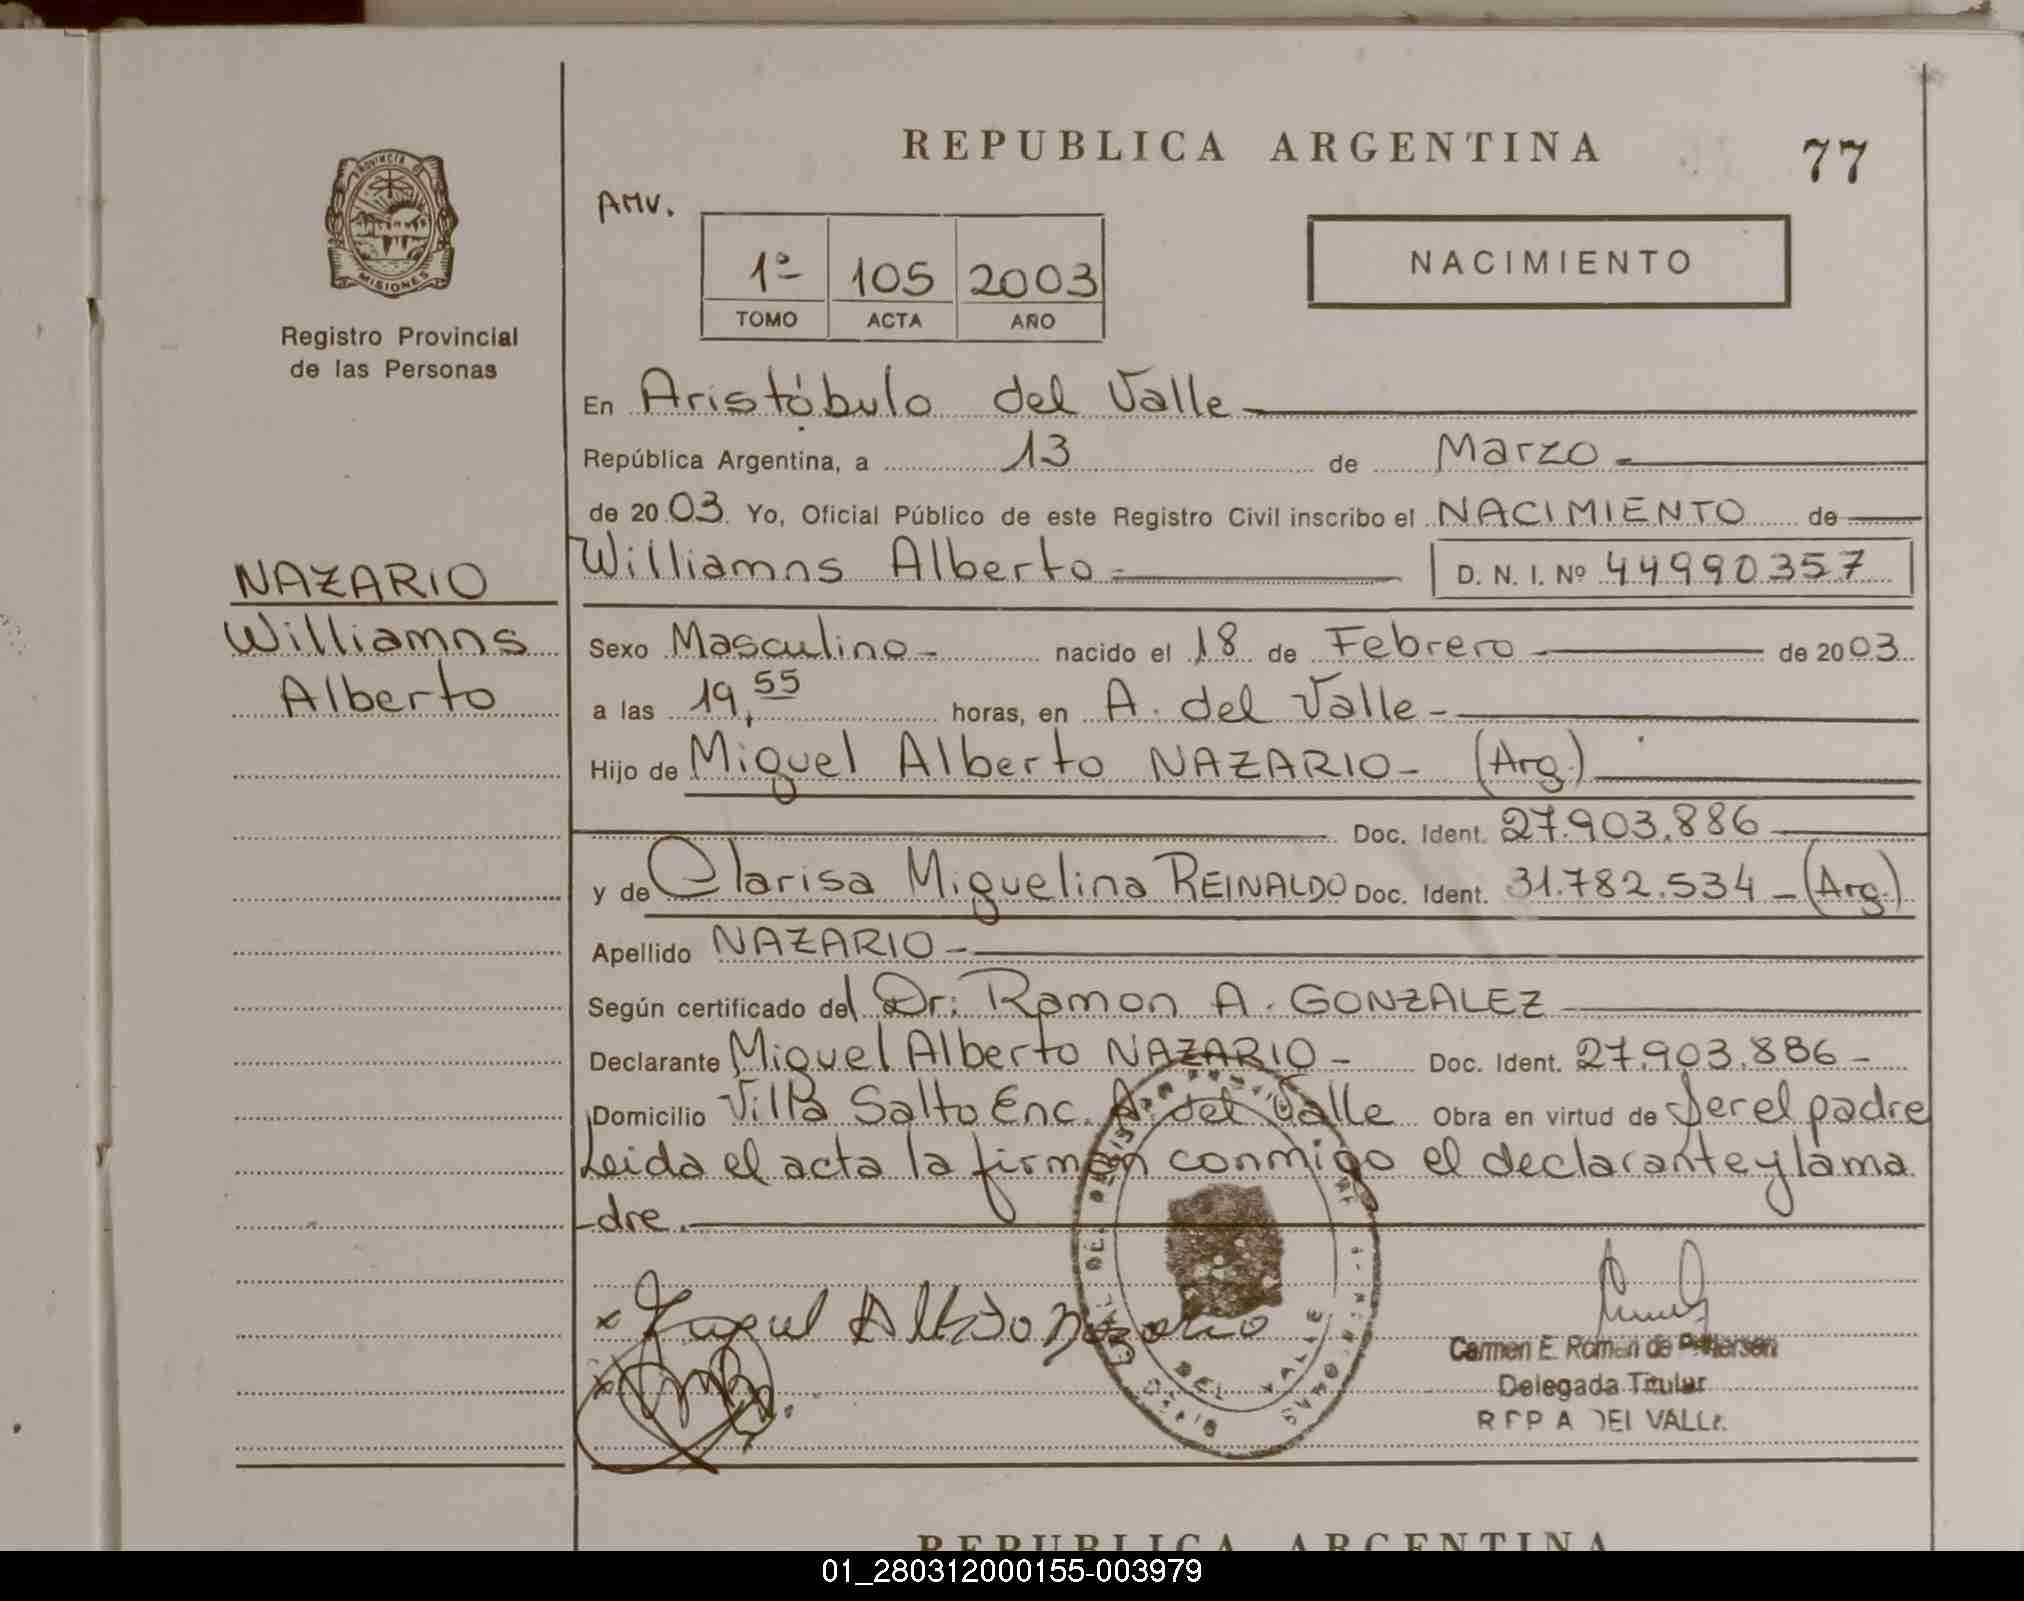 REPUBLICA ARGENTINA
77
AMV.
PROVINCIA
MISIONES
Registro Provincial
de las Personas
1º 105 2003
TOMO ACTA AÑO
NACIMIENTO
En Aristóbulo del Valle
República Argentina, a 13 de Marzo
de 2003. Yo, Oficial Público de este Registro Civil inscribo el NACIMIENTO de
Williamns Alberto
D. N. I. Nº 44990357
NAZARIO
Williamns
Alberto
Sexo Masculino nacido el 18 de Febrero de 2003
a las 19,55 horas, en A. del Valle
Hijo de Miguel Alberto NAZARIO (Arg.)
Doc. Ident. 27.903.886
y de Clarisa Miguelina REINALDO Doc. Ident. 31.782.534 (Arg.)
Apellido NAZARIO
Según certificado del Dr: Ramon A. GONZALEZ
Declarante Miguel Alberto NAZARIO Doc. Ident. 27.903.886
Domicilio Villa Salto Enc. A. del Valle Obra en virtud de ser el padre
Leida el acta la firman conmigo el declarante y la ma
dre.
Alberto Nazario
DEL VALLE
Carmen E. Román de
Delegada Titular
VALLE
REPUBLICA ARGENTINA
01_280312000155-003979